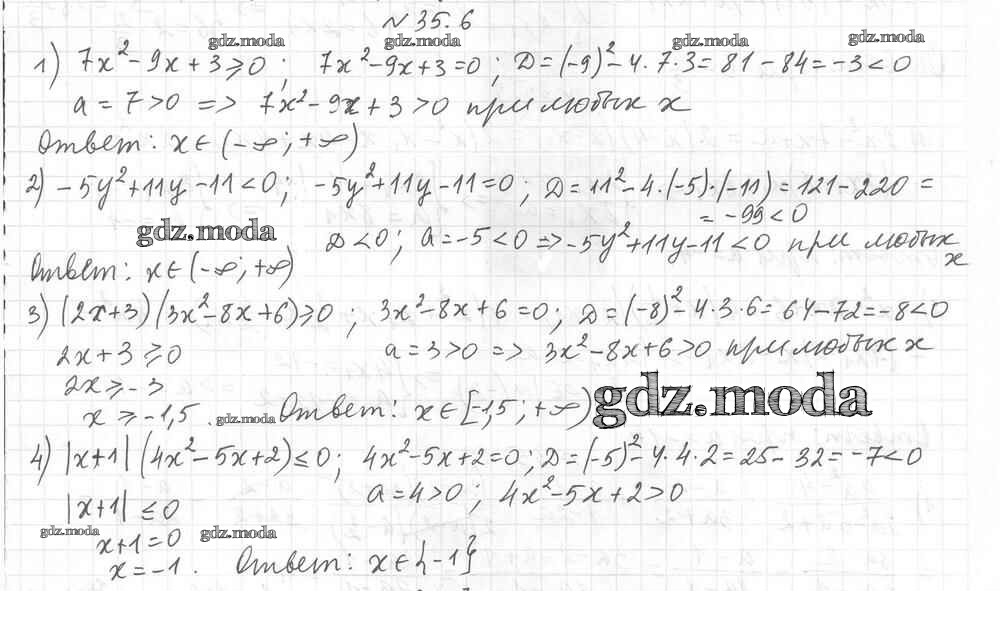 № 35.6
gdz.moda gdz.moda gdz.moda gdz.moda
1) 7x² - 9x + 3 ⩾ 0 ; 7x² - 9x + 3 = 0 ; D = (-9)² - 4·7·3 = 81 - 84 = -3 < 0
a = 7 > 0 => 7x² - 9x + 3 > 0 при любых x
Ответ: x ∈ (-∞; +∞)
2) -5y² + 11y - 11 < 0 ; -5y² + 11y - 11 = 0 ; D = 11² - 4·(-5)·(-11) = 121 - 220 =
= -99 < 0
gdz.moda D < 0 ; a = -5 < 0 => -5y² + 11y - 11 < 0 при любых
x
Ответ: x ∈ (-∞; +∞)
3) (2x+3)(3x² - 8x + 6) ⩾ 0 ; 3x² - 8x + 6 = 0 ; D = (-8)² - 4·3·6 = 64 - 72 = -8 < 0
2x + 3 ⩾ 0 a = 3 > 0 => 3x² - 8x + 6 > 0 при любых x
2x ⩾ -3
x ⩾ -1,5 . gdz.moda Ответ: x ∈ [-1,5 ; +∞) gdz.moda
4) |x+1| (4x² - 5x + 2) ≤ 0 ; 4x² - 5x + 2 = 0 ; D = (-5)² - 4·4·2 = 25 - 32 = -7 < 0
|x+1| ≤ 0 a = 4 > 0 ; 4x² - 5x + 2 > 0
gdz.moda x+1 = 0 gdz.moda
x = -1 . Ответ: x ∈ {-1}